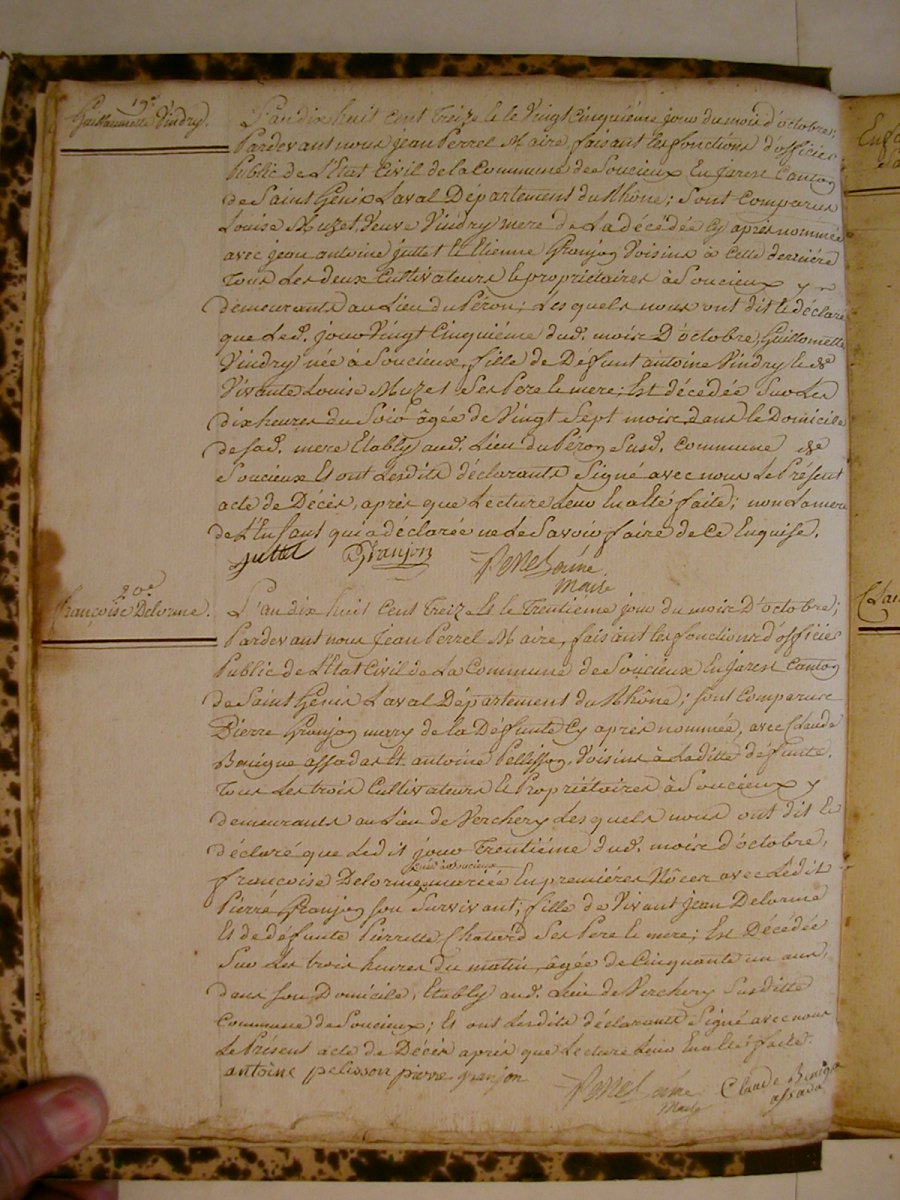 19e
Guillaumette Vindry.
L'an dix huit cent treize et le vingt cinquiéme jour du mois d'octobre;
Pardevant nous jean Perrel Maire, faisant les fonctions d'officier
Public de l'Etat Civil de la Commune de Soucieux En jarest Canton
de Saint Genis Laval Département du Rhône; sont Comparus
Louise Muzet Veuve Vindry mere de La décédée Cy après nommée
avec jean antoine juttet et Etienne Granjon Voisins à Cette derniére
Tous Les deux Cultivateurs et propriétaires à Soucieux y
demeurants au Lieu du Péron; Lesquels nous ont dit et déclaré
que Led. jour Vingt Cinquiéme dud. mois D'octobre, Guillomette
Vindry née à Soucieux, fille de Défunt antoine Vindry et de
Vivante Louise Muzet Ses Pere et mere; Est décédée Sur Les
dix heures du Soir âgée de Vingt Sept mois, dans le Domicile
de sad. mere Etably aud. Lieu du Péron Susd. Commune de
Soucieux Et ont Lesdits déclarants Signé avec nous Le Présent
acte de Décès, après que Lecture Leur En a été faite; non La mere
de L'Enfant qui a déclarée ne Le Savoir faire de Ce Enquise.
juttet Granjon Perrel
Maire
20e
Françoise Delorme.
L'an dix huit Cent Treize Et le Trentiéme jour du mois D'octobre;
Pardevant nous jean Perrel Maire, faisant les fonctions d'officier
Public de l'Etat Civil de La Commune de Soucieux En jarest Canton
de Saint Genis Laval Département du Rhône; sont Comparus
Pierre Granjon mary de la Défunte Cy après nommée, avec Claude
Benigne assada et antoine Pellisson, Voisins à Laditte défunte.
Tous Les trois Cultivateurs et Propriétaires à Soucieux y
demeurants au Lieu de Verchery Lesquels nous ont dit Et
déclaré que Ledit jour Trentiéme dud. mois d'octobre,
née à Soucieux
françoise Delorme mariée En premiéres Nôces avec Ledit
Pierre Granjon son Survivant; fille de Vivant Jean Delorme
Et de défunte Pierrette Chatard Ses Pere et mere; Est Décédée
Sur Les trois heures du matin, âgée de Cinquante un ans,
dans son Domicile, Etably aud. Lieu de Verchery Susditte
Commune de Soucieux; Et ont Lesdits déclarants Signé avec nous
Le Présent acte de Décès après que Lecture Leur En a été faite.
antoine pelisson pierre granjon Perrel Claude Beniga
Maire assada